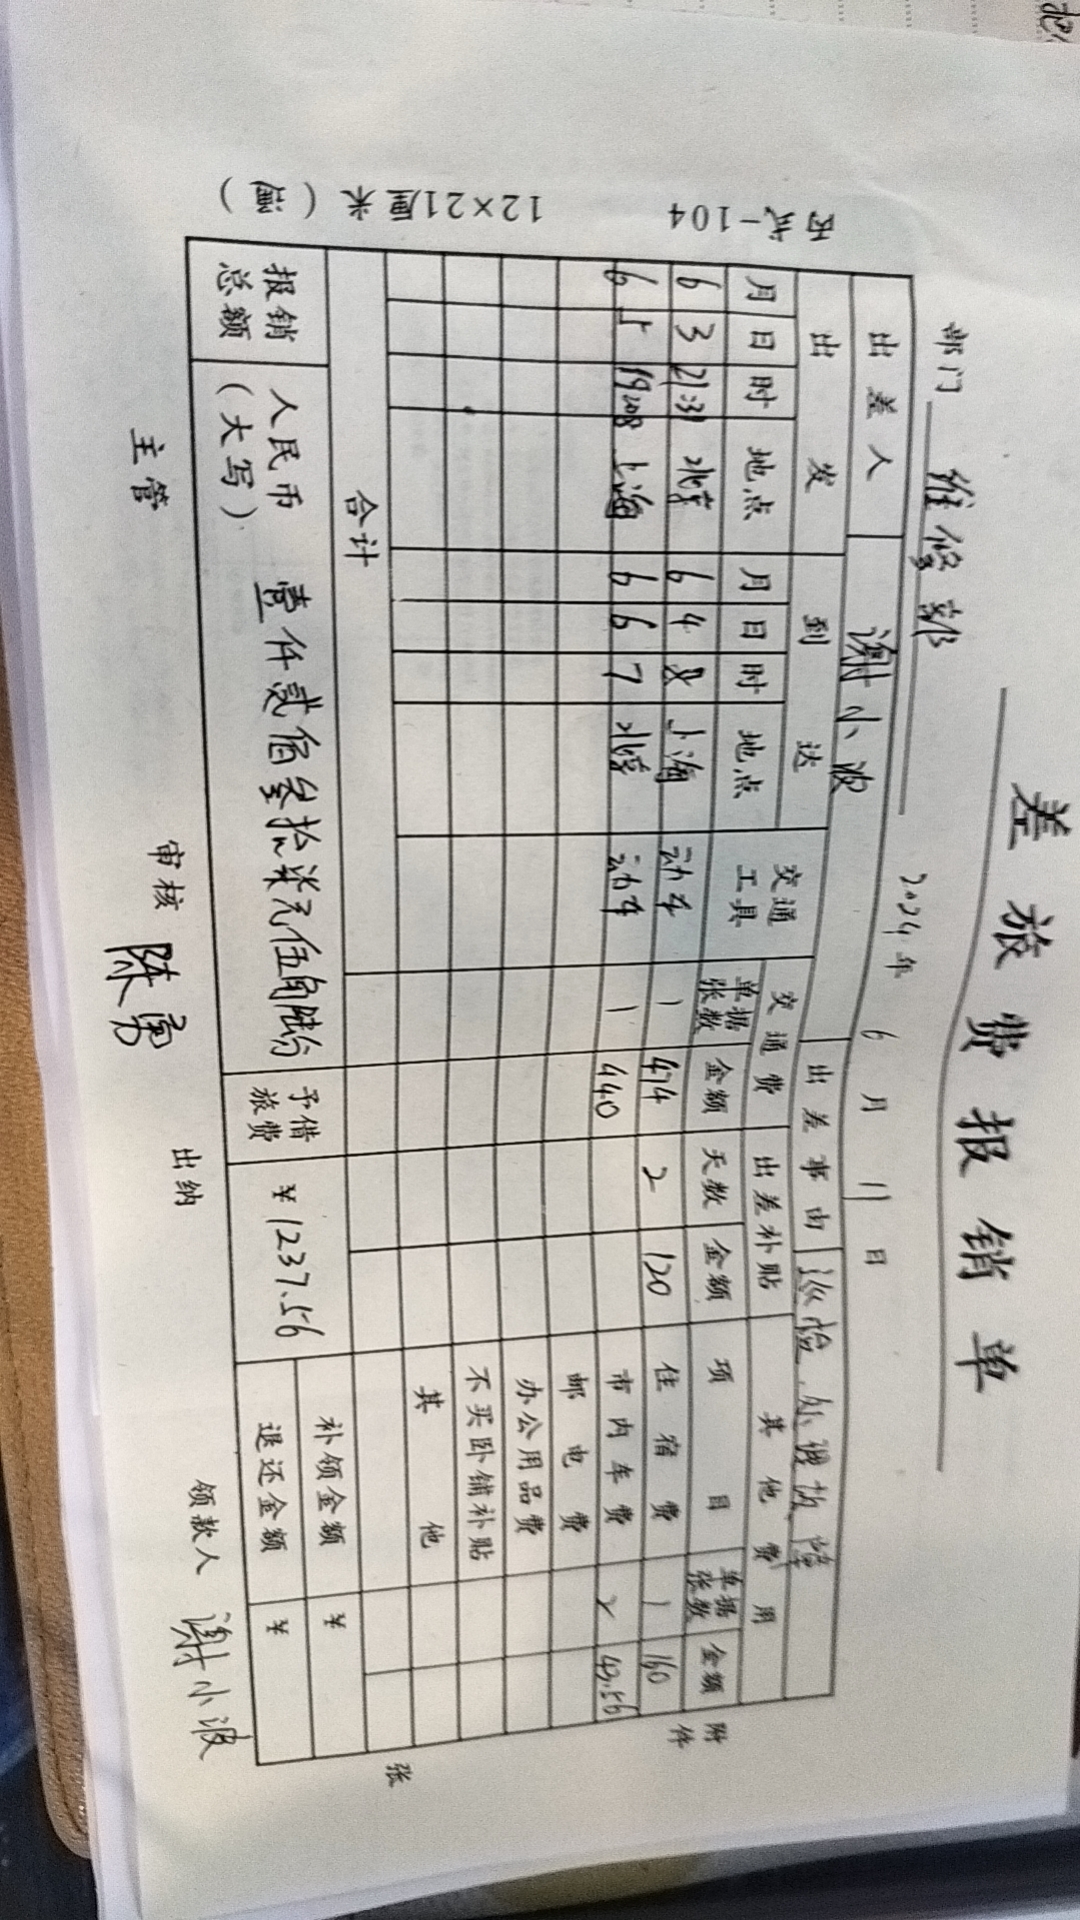 差旅费报销单
部门 维修部 2024年 6月 11日
出差人 谢小波 出差事由 巡检、处理故障
出发 到达 交通工具 交通费 出差补贴 其他费用
月 日 时 地点 月 日 时 地点 单据张数 金额 天数 金额 项目 单据张数 金额
6 3 21:31 北京 6 4 8 上海 动车 1 474 2 120 住宿费 1 160
6 5 19:08 上海 6 6 7 北京 动车 1 440 市内车费 2 43.56
邮电费
办公用品费
不买卧铺补贴
其他
合计
报销总额 人民币(大写) 壹仟贰佰叁拾柒元伍角陆分 予借旅费 ¥1237.56 补领金额 ¥
退还金额 ¥
主管 审核 陈勇 出纳 领款人 谢小波
附件 张
丙式-104 12×21厘米